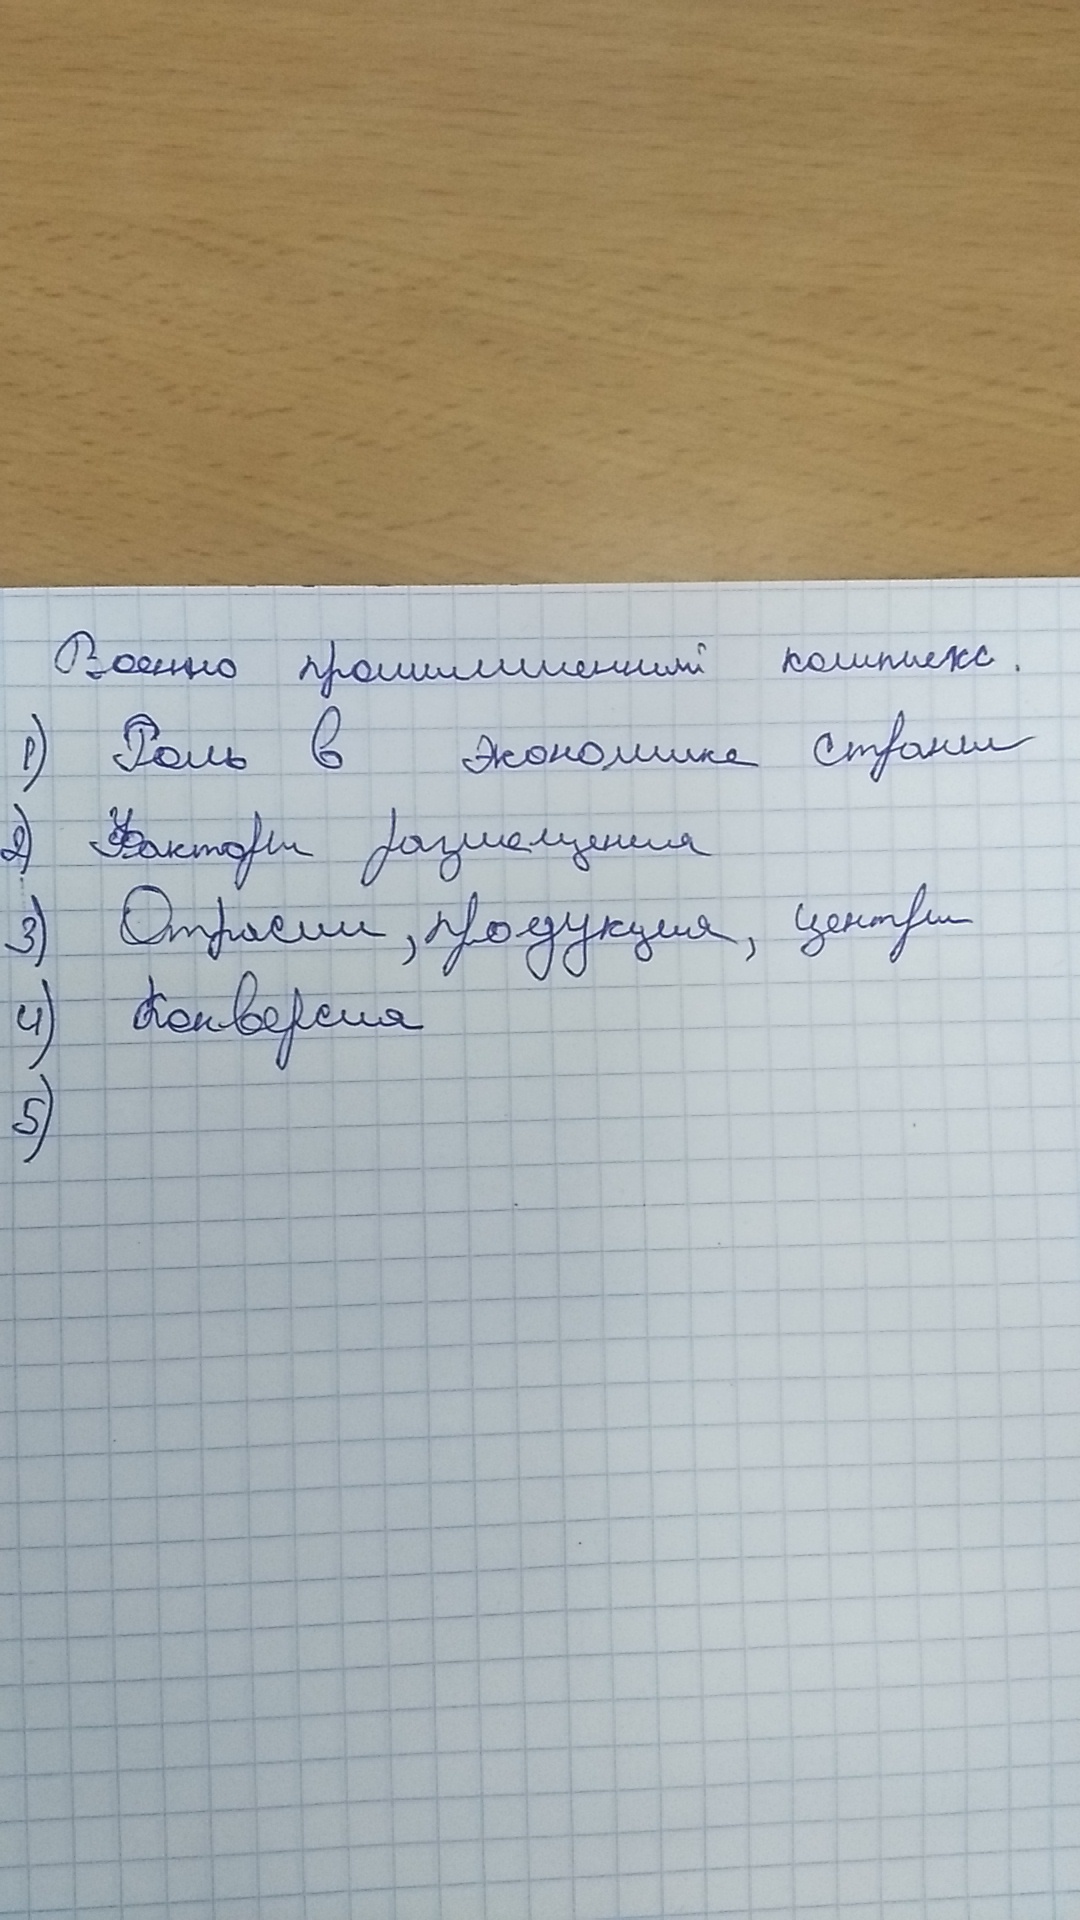 Военно промышленный комплекс.
1) Роль в экономике страны
2) Факторы размещения
3) Отрасли, продукция, центры
4) Конверсия
5)